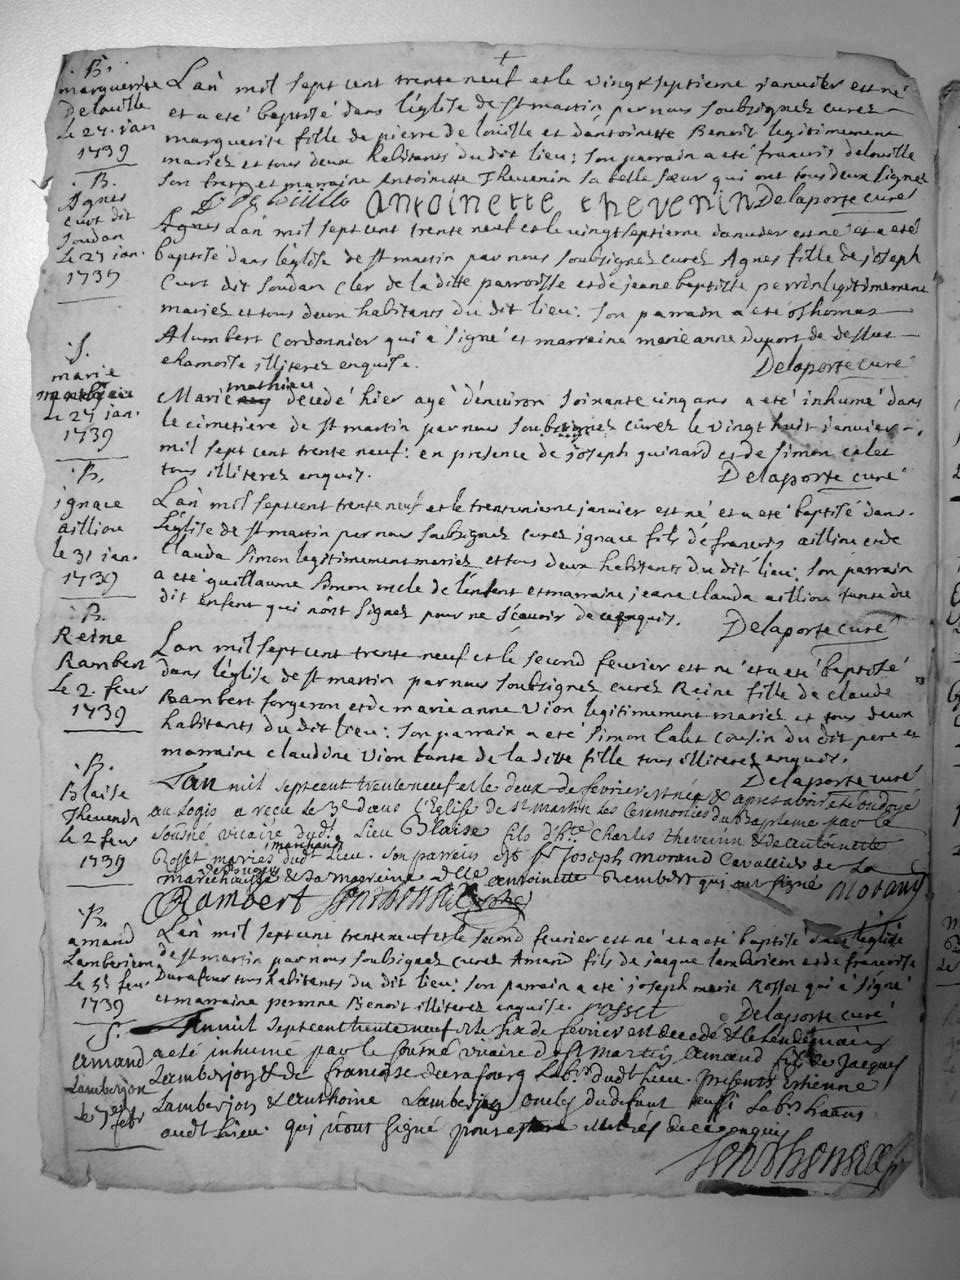 B.
marguerite
Delouille
Le 27. jan
1739
L'an mil sept cent trente neuf et le vingt septieme janvier est né
et a eté baptisé dans l'église de St martin par nous soubsignez curez
marguerite fille de pierre de louille et d'antoinette Benoist legitimement
mariez et tous deux habitants du dit lieu: son parrain a eté francois delouille
son frere et marraine Antoinette Thevenin sa belle sœur qui ont tous deux signez
antoinette thevenin Delaporte curé
B.
Agnes
curt dit
soudan
Le 27 jan.
1739
Agnes L'an mil sept cent trente neuf et le vingt septieme janvier est né et a eté
baptisé dans l'église de St martin par nous soubsignez curez Agnes fille de joseph
Curt dit soudan cler de la ditte parroisse et de jeane baptiste perrin legitimement
mariez et tous deux habitants du dit lieu: son parrain a eté Thomas
Alumbert Cordonnier qui a signé et marreine marie anne duport de dessus
chamoste illiterez enquise. Delaporte curé
S.
marie
Le 27 jan.
1739
mathieu
Marie decedé hier agé d'environ soixante cinq ans a eté inhumé dans
le cimetiere de St martin par nous soubsignez curez le vingt huit janvier
mil sept cent trente neuf: en presence de joseph guinard et de simon calet
tous illiterez enquis. Delaporte curé
B.
ignace
ailliou
le 31 jan.
1739
L'an mil sept cent trente neuf et le trente unieme janvier est né et a eté baptisé dans
l'église de St martin par nous soubsignez curez ignace fils de francois ailliou et de
Clauda simon legitimement mariez et tous deux habitants du dit lieu: son parrain
a eté guillaume simon oncle de l'enfant et marraine jeane clauda aillioux tante du
dit enfant qui n'ont signez pour ne scavoir de ce enquis. Delaporte curé
B.
Reine
Rambert
Le 2. feur
1739
L'an mil sept cent trente neuf et le second fevrier est né et a eté baptisé
dans l'église de St martin par nous soubsignez curez Reine fille de claude
Rambert forgeron et de marie anne Vion legitimement mariez et tous deux
habitants du dit lieu: son parrain a eté simon Calet cousin du dit pere et
marraine claudine Vion tante de la ditte fille tous illiterez enquis.
Delaporte curé
B.
Blaise
Thevenin
Le 2 feur
1739
L'an mil sept cent trente neuf et le deux de fevrier est née & apres avoir eté ondoyé
au Logis a reçu le 3e dans l'Eglise de St martin les Ceremonies du Bapteme par le
sousné vicaire dudt Lieu Blaise fils d'hte Charles thevenin & de antoinette
Rosset mariés marchand dudt Lieu. son parrein est sr Joseph morand Cavallier de la
marechaussé & sa marreine dlle antoinette Rembert qui ont signé morand
Rambert
B.
amand
Lamberien
Le 5e feur
1739
L'an mil sept cent trente neuf et le second fevrier est né et a eté baptisé dans l'église
de St martin par nous soubsignez curez Amand fils de jacque lamberien et de francoise
Durafour tous habitants du dit lieu: son parrain a eté joseph marie Rosset qui a signé
et marraine perrine Benoit illiterez enquise. rosset Delaporte curé
S.
amand
Lamberjon
Le 7e febr
L'an mil sept cent trente neuf & le six de fevrier est decedé & le lendemain
a eté inhumé par le sousné vicaire de St Martin amand fils de Jacques
Lamberjon & de francoise durafourg labrs dudt lieu. presents estienne
Lamberjon & anthoine Lamberjon oncles du defunt aussi labrs
audt lieu. qui n'ont signé pour estre illitrés de ce enquis